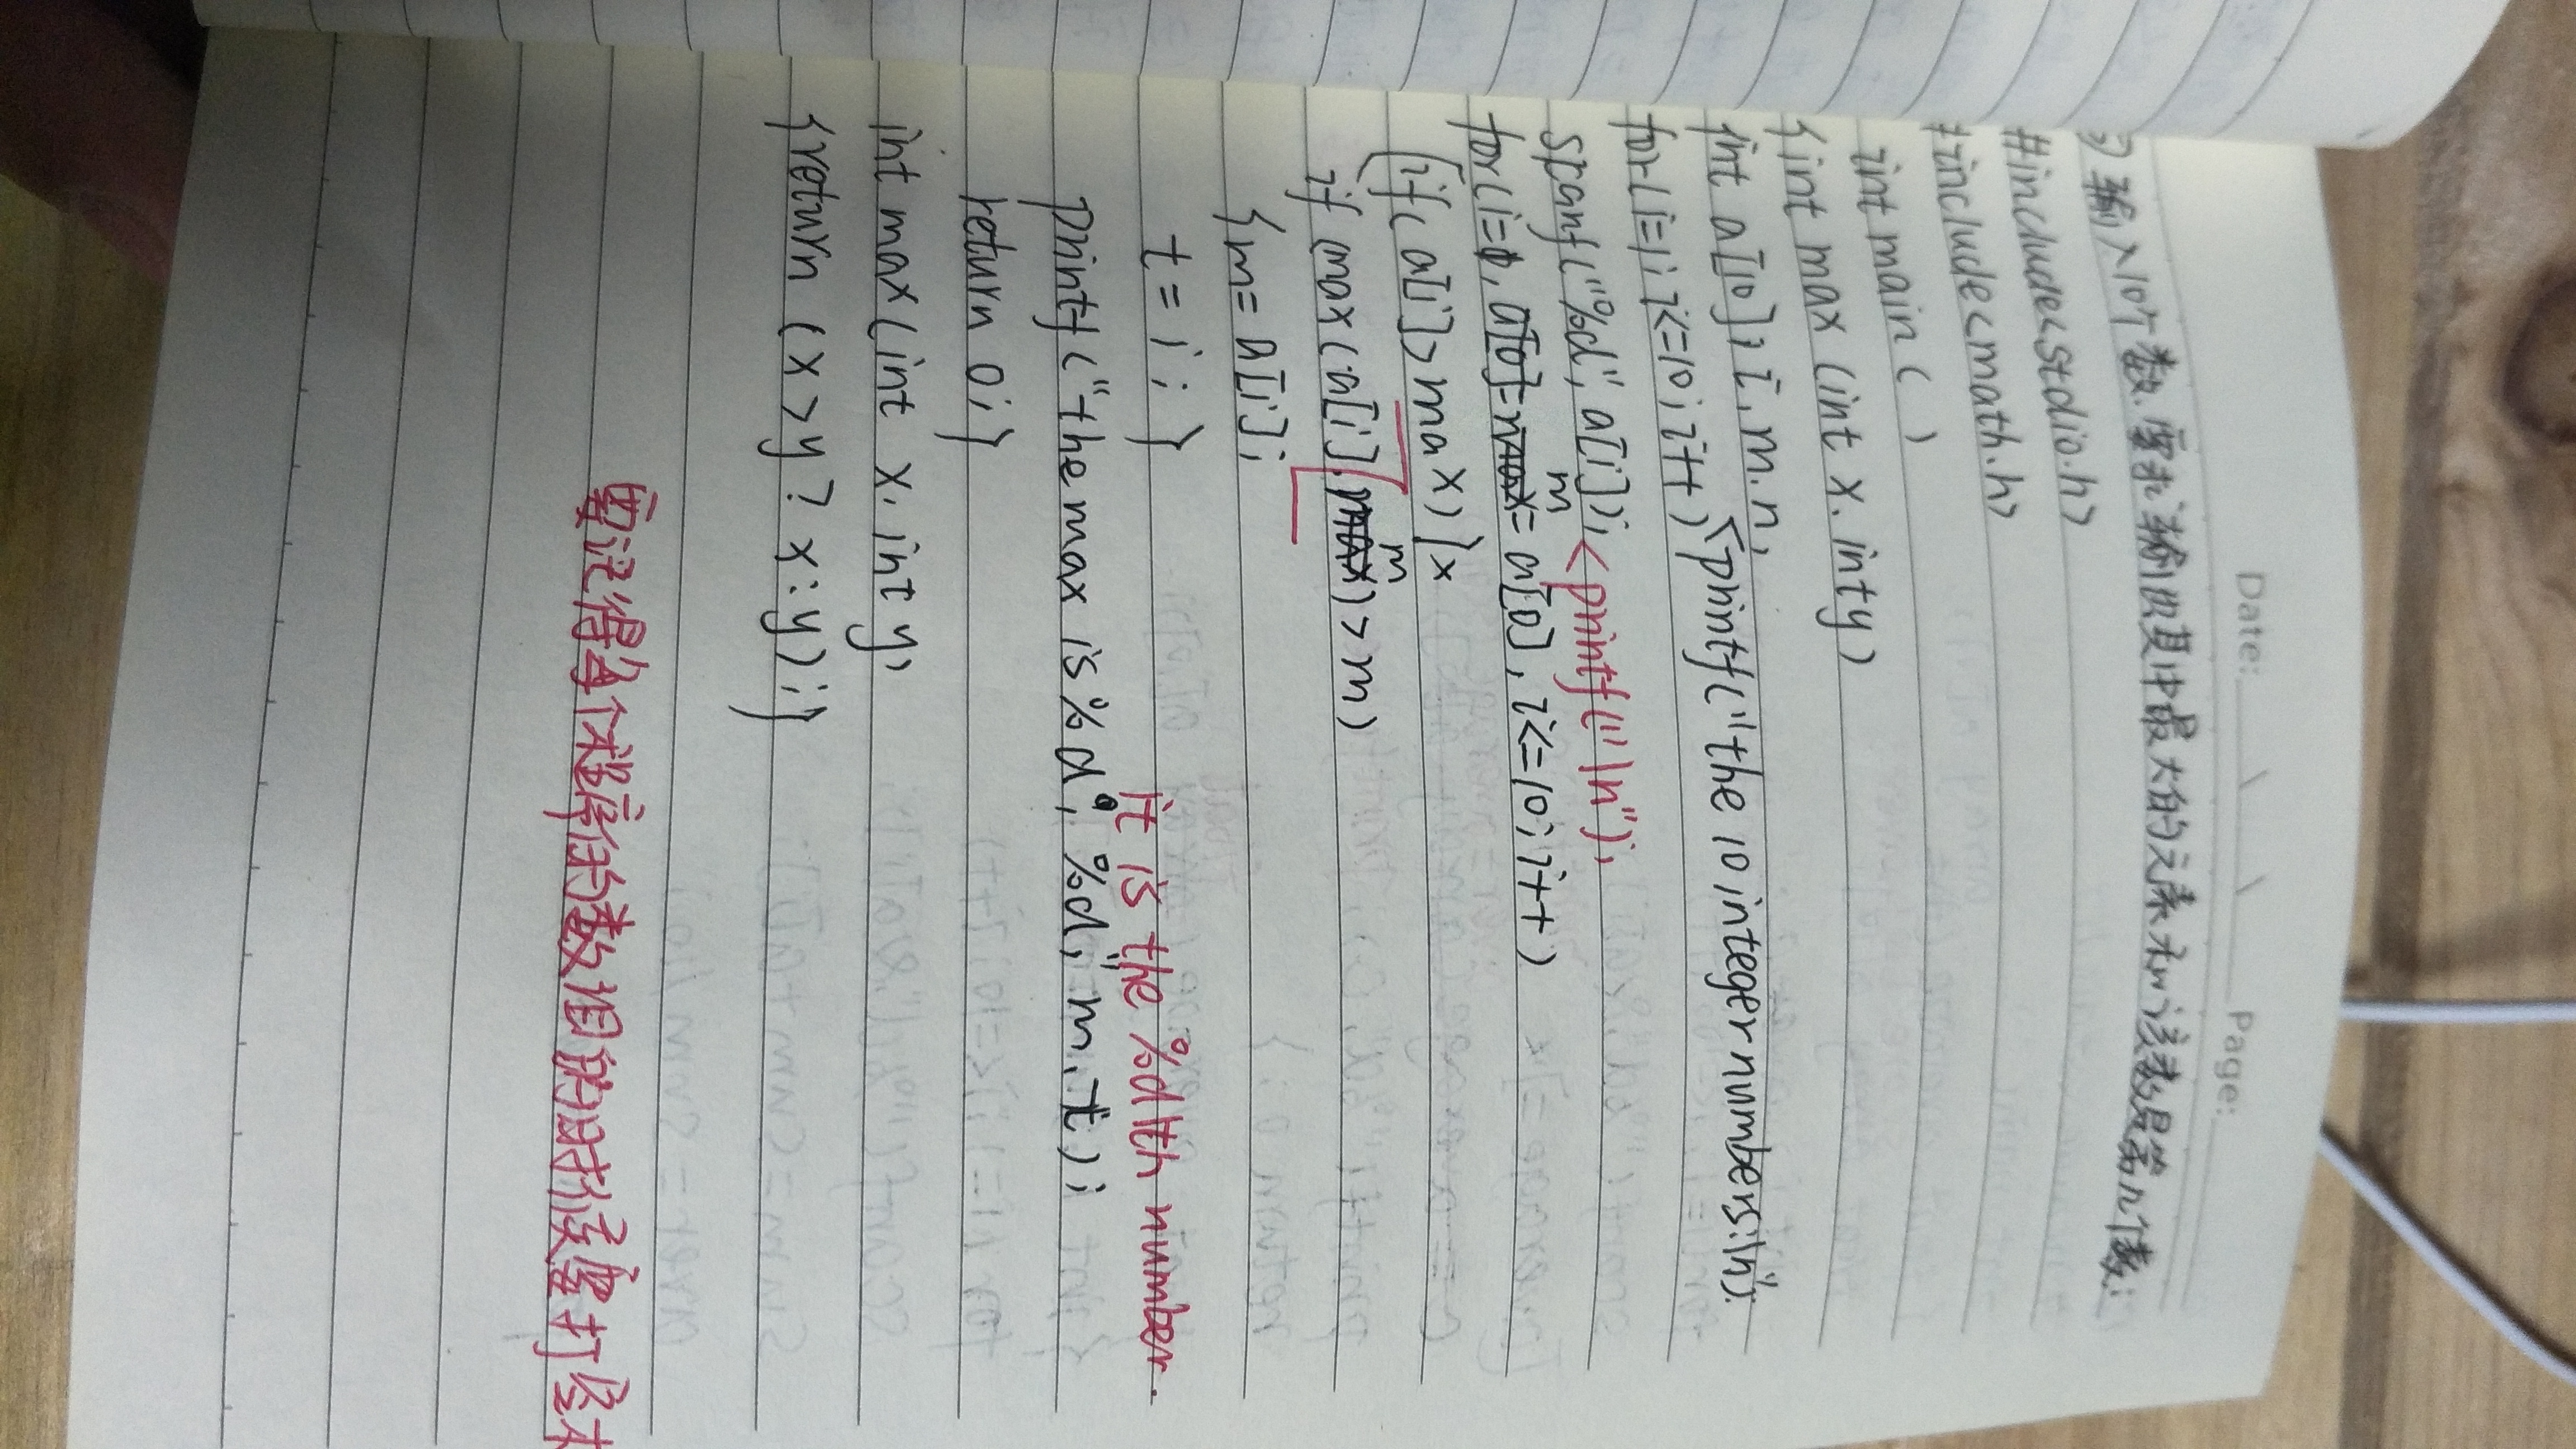 Date: / / Page:
3) 输入10个数,要求输出其中最大的元素和该数是第几个数;
#include<stdio.h>
#include<math.h>
int main()
{int max(int x, int y)
int a[10], i, m, n,
for(i=1;i<=10;i++) <printf("the 10 integer numbers:\n");
scanf("%d",a[i]); <printf("\n");
m
for(i=0, a[0]=max= a[0], i<=10;i++)
(if(a[i]>max)}x
m
if (max(a[i],max)>m)
{m=a[i];
t=i;}
it is the %dth number.
printf("the max is %d, %d,", m, t);
return 0;}
int max(int x, int y,
{return (x>y? x:y);}